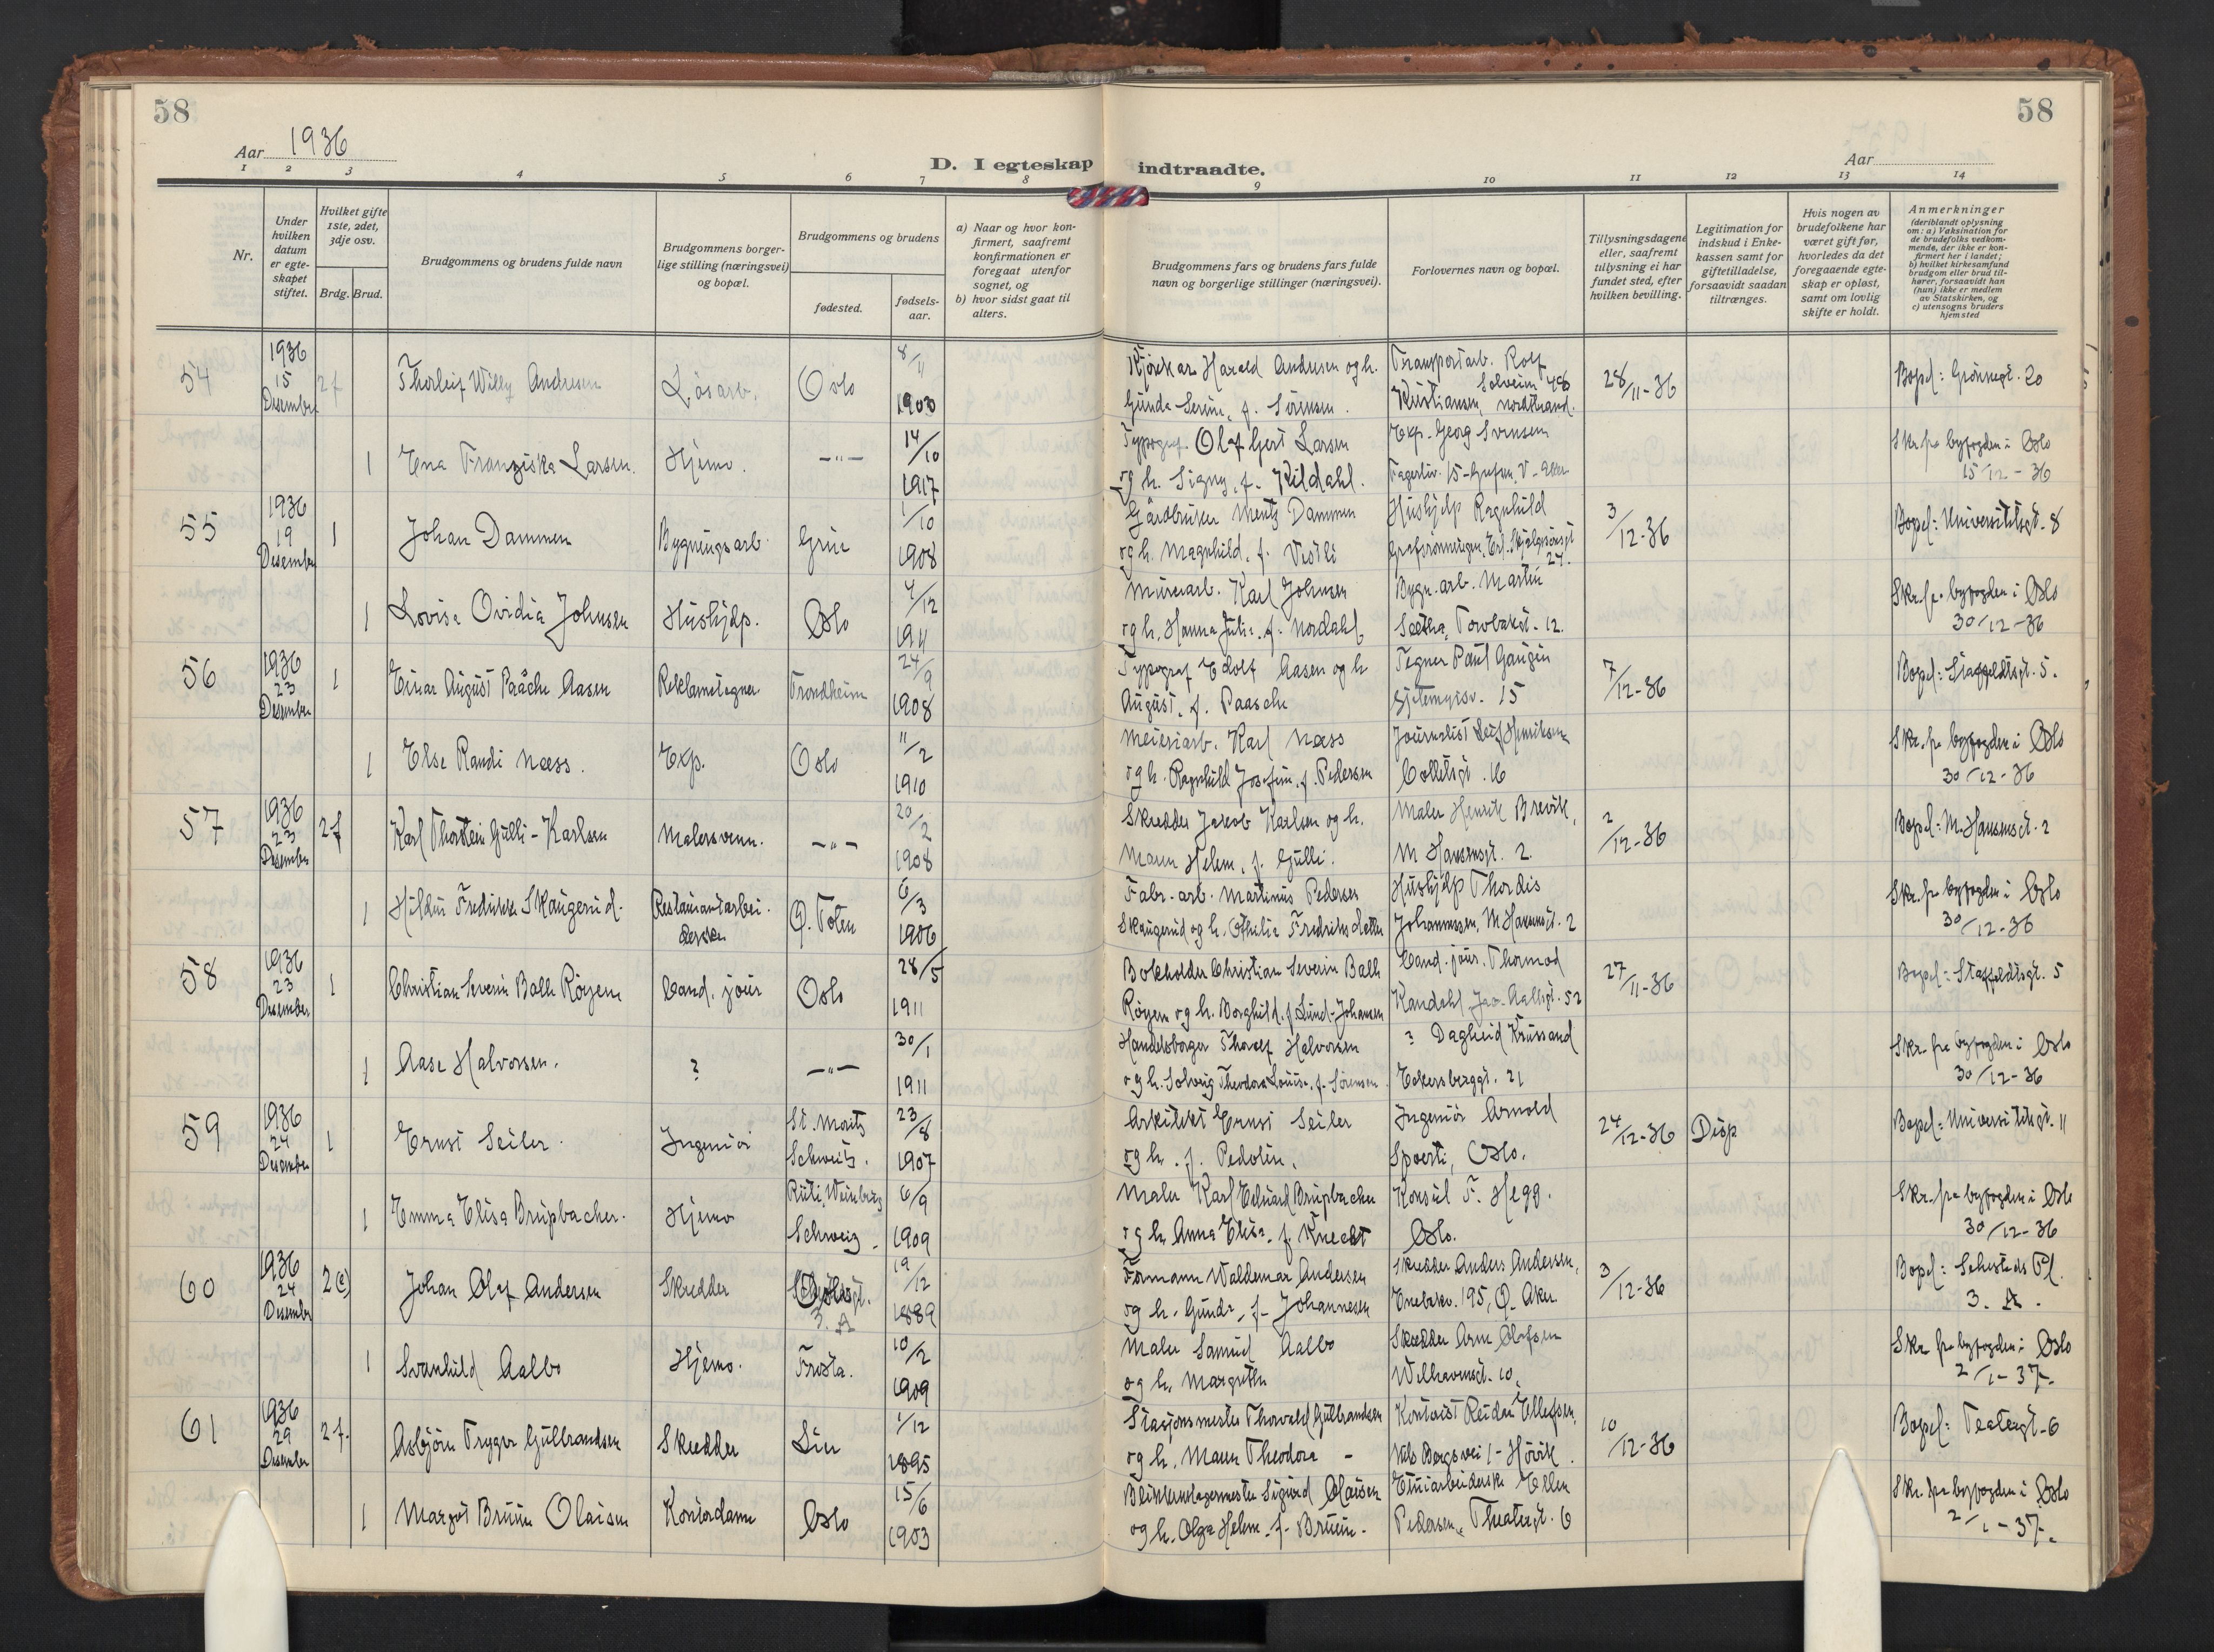 58
58
Aar 1936
D. I egteskap indtraadte.
Aar
1 2 3 4 5 6 7 8 9 10 11 12 13 14
Nr.
Under hvilken datum er egteskapet stiftet.
Hvilket gifte 1ste, 2det, 3dje osv.
Brdg. Brud.
Brudgommens og brudens fulde navn
Brudgommens borgerlige stilling (næringsvei) og bopæl.
Brudgommens og brudens
fødested.
fødselsaar.
a) Naar og hvor konfirmert, saafremt konfirmationen er foregaat utenfor sognet, og
b) hvor sidst gaat til alters.
Brudgommens fars og brudens fars fulde navn og borgerlige stillinger (næringsvei).
Forlovernes navn og bopæl.
Tillysningsdagene eller, saafremt tillysning ei har fundet sted, efter hvilken bevilling.
Legitimation for indskud i Enkekassen samt for giftetilladelse, forsaavidt saadan tiltrænges.
Hvis nogen av brudefolkene har været gift før, hvorledes da det foregaaende egteskap er opløst, samt om lovlig skifte er holdt.
Anmerkninger (deriblandt oplysning om: a) Vaksination for de brudefolks vedkommende, der ikke er konfirmert her i landet; b) hvilket kirkesamfund brudgom eller brud tilhører, forsaavidt han (hun) ikke er medlem av Statskirken, og c) utensogns bruders hjemsted
54 1936 15 Desember 2f Thorleif Willy Andresen Løsarb. Oslo 8/11 1903 Harald Andresen og h. Gunda Serine, f. Sørensen. Transportarb. Rolf Kristiansen, Solveien 48 Nordstrand. 28/11-36 Bopel: Grønnegt. 20
1 Ena Franziska Larsen. Hjemv. -"- 14/10 1917 Typograf Olaf Gert Larsen og h. Signy, f. Kildahl. Exp. Georg Svensen Fagerliv. 15 - Grefsen, V-Aker Skr. fra byfogden i Oslo 15/12-36
55 1936 19 Desember 1 Johan Dammen Bygningsarb. Grue 1/10 1908 Gårdbruker Mentz Dammen og h. Magnhild, f. Vestli Hushjelp Ragnhild 27. 3/12-36 Bopel: Universitetsgt. 8
1 Lovise Ovidia Johnsen Hushjelp. Oslo 4/12 1911 Murerarb. Karl Johnsen og h. Hanna Julie, f. Nordahl Bygn.arb. Martin 12. Skr. fra byfogden i Oslo 30/12-36
56 1936 23 Desember 1 Einar August Paasche Aasen Reklametegner Trondheim 24/9 1908 Typograf Edolf Aasen og h. August. f. Paasche Tegner Paul Gauguin 15 7/12-36 Bopel: Staffeldtsgt. 5.
1 Else Randi Næss. Exp. Oslo 11/2 1910 Meieriarb. Karl Næss og h. Ragnhild Josefine, f. Pedersen Journalist Leif Henriksen Colletsgt. 16 Skr. fra byfogden i Oslo 30/12-36
57 1936 23 Desember 2f Karl Thorstein Gulli-Karlsen Malersvenn. -"- 20/2 1908 Skredder Jakob Karlsen og h. Maren Helene, f. Gulli. Maler Henrik Brevik, M Hansensgt. 2. 2/12-36 Bopel: M. Hansensgt. 2
1 Hildur Fredrikke Skaugerud. Restaurantarbeiderske Ø. Toten 6/3 1906 Fabr.-arb. Martinus Pedersen Skaugerud og h. Othilie Fredriksdatter Hushjelp Thordis Johannessen, M Hansensgt. 2 Skr. fra byfogden i Oslo 30/12-36
58 1936 23 Desember 1 Christian Severin Balle Røyem Cand. jour Oslo 28/5 1911 Bokholder Christian Severin Balle Røyem og h. Borghild, f. Lund-Johansen Cand. jour. Thormod Kandahl, Jac. Aallsgt. 52 27/11-36 Bopel: Staffeldtsgt. 5
1 Aase Halvorsen. ? -"- 30/1 1911 Handelsborger Thoralf Halvorsen og h. Solveig Theodora Louise, f. Sørensen. ? Eckersberggt. 21 Skr. fra byfogden i Oslo 30/12-36
59 1936 24 Desember 1 Ernst Seiler. Ingeniør St. Moritz Schweiz. 23/8 1907 Arkitekt Ernst Seiler og h. f. Pedolin. Ingeniør Arnold Spoerli, Oslo. 24/12-36 Disp Bopel: Universitetsgt. 11
1 Emma Elisa Brupbacher. Hjemv Schweiz 6/9 1909 Maler Karl Eduard Brupbacher og h. Anna Elisa, f. Knecht Konsul F. Hegg. Oslo. Skr. fra byfogden i Oslo 30/12-36
60 1936 24 Desember 2(e) Johan Olaf Andersen Skredder Oslo 3. A 19/12 1889 Formann Waldemar Andersen og h. Gunda, f. Johannesen Skredder Anders Andersen, Enebakv. 195, Ø. Aker 3/12-36 Bopel: Sehesteds Pl. 3. A.
1 Svanhild Aalbo Hjemv. Frosta. 10/2 1909 Maler Samuel Aalbo og h. Margrethe Skredder Arne Olafsen Welhavensgt. 10. Skr fra byfogden i Oslo 2/1-37.
61 1936 29 Desember 2f. Asbjørn Trygve Gulbrandsen Skredder Lier 1/12 1895 Stasjonsmester Thorvald Gulbrandsen og h. Maren Theodora - Kontorist Reidar Ellefsen, Nils Bergsvei 1 - Høvik. 10/12-36 Bopel: Teatergt. 6
1 Margot Bruun Olaisen Kontordame Oslo 15/6 1903 Blikkenslagermester Sigurd Olaisen og h. Olga Helene, f. Bruun. Etuiarbeiderske Ellen Pedersen, Theatergt. 6 Skr. fra byfogden i Oslo 2/1-37.